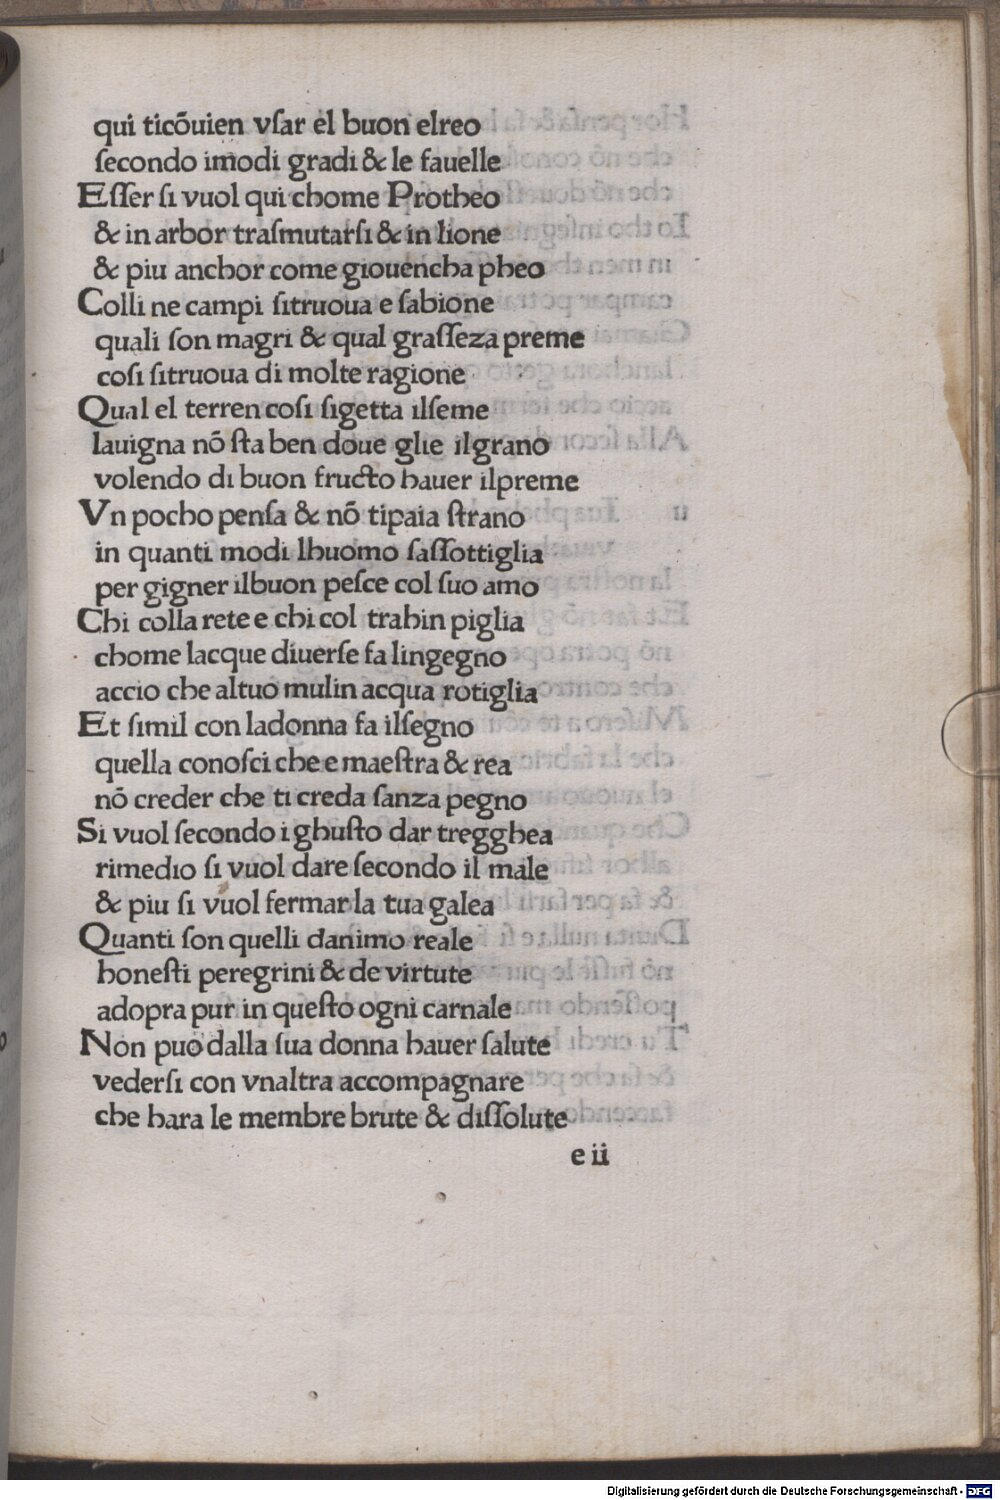 qui ticõuien vſar el buon elreo
ſecondo imodi gradi & le fauelle
Eſſer ſi vuol qui chome Protheo
& in arbor traſmutarſi & in lione
& piu anchor come giouencha pheo
Colli ne campi ſitruoua e ſabione
quali ſon magri & qual graſſeza preme
coſi ſitruoua di molte ragione
Qual el terren coſi ſigetta ilſeme
lauigna nõ ſta ben doue glie ilgrano
volendo di buon fructo hauer ilpreme
Vn pocho penſa & nõ tipaia ſtrano
in quanti modi lhuomo ſaſſottiglia
per gigner ilbuon peſce col ſuo amo
Chi colla rete e chi col trahin piglia
chome lacque diuerſe fa lingegno
accio che altuo mulin acqua rotiglia
Et ſimil con ladonna fa ilſegno
quella conoſci che e maeſtra & rea
nõ creder che ti creda ſanza pegno
Si vuol ſecondo i ghuſto dar tregghea
rimedio ſi vuol dare ſecondo il male
& piu ſi vuol fermar la tua galea
Quanti ſon quelli danimo reale
honeſti peregrini & de virtute
adopra pur in queſto ogni carnale
Non puo dalla ſua donna hauer ſalute
vederſi con vnaltra accompagnare
che hara le membre brute & diſſolute
e ii
Digitalisierung gefördert durch die Deutsche Forschungsgemeinschaft - DFG